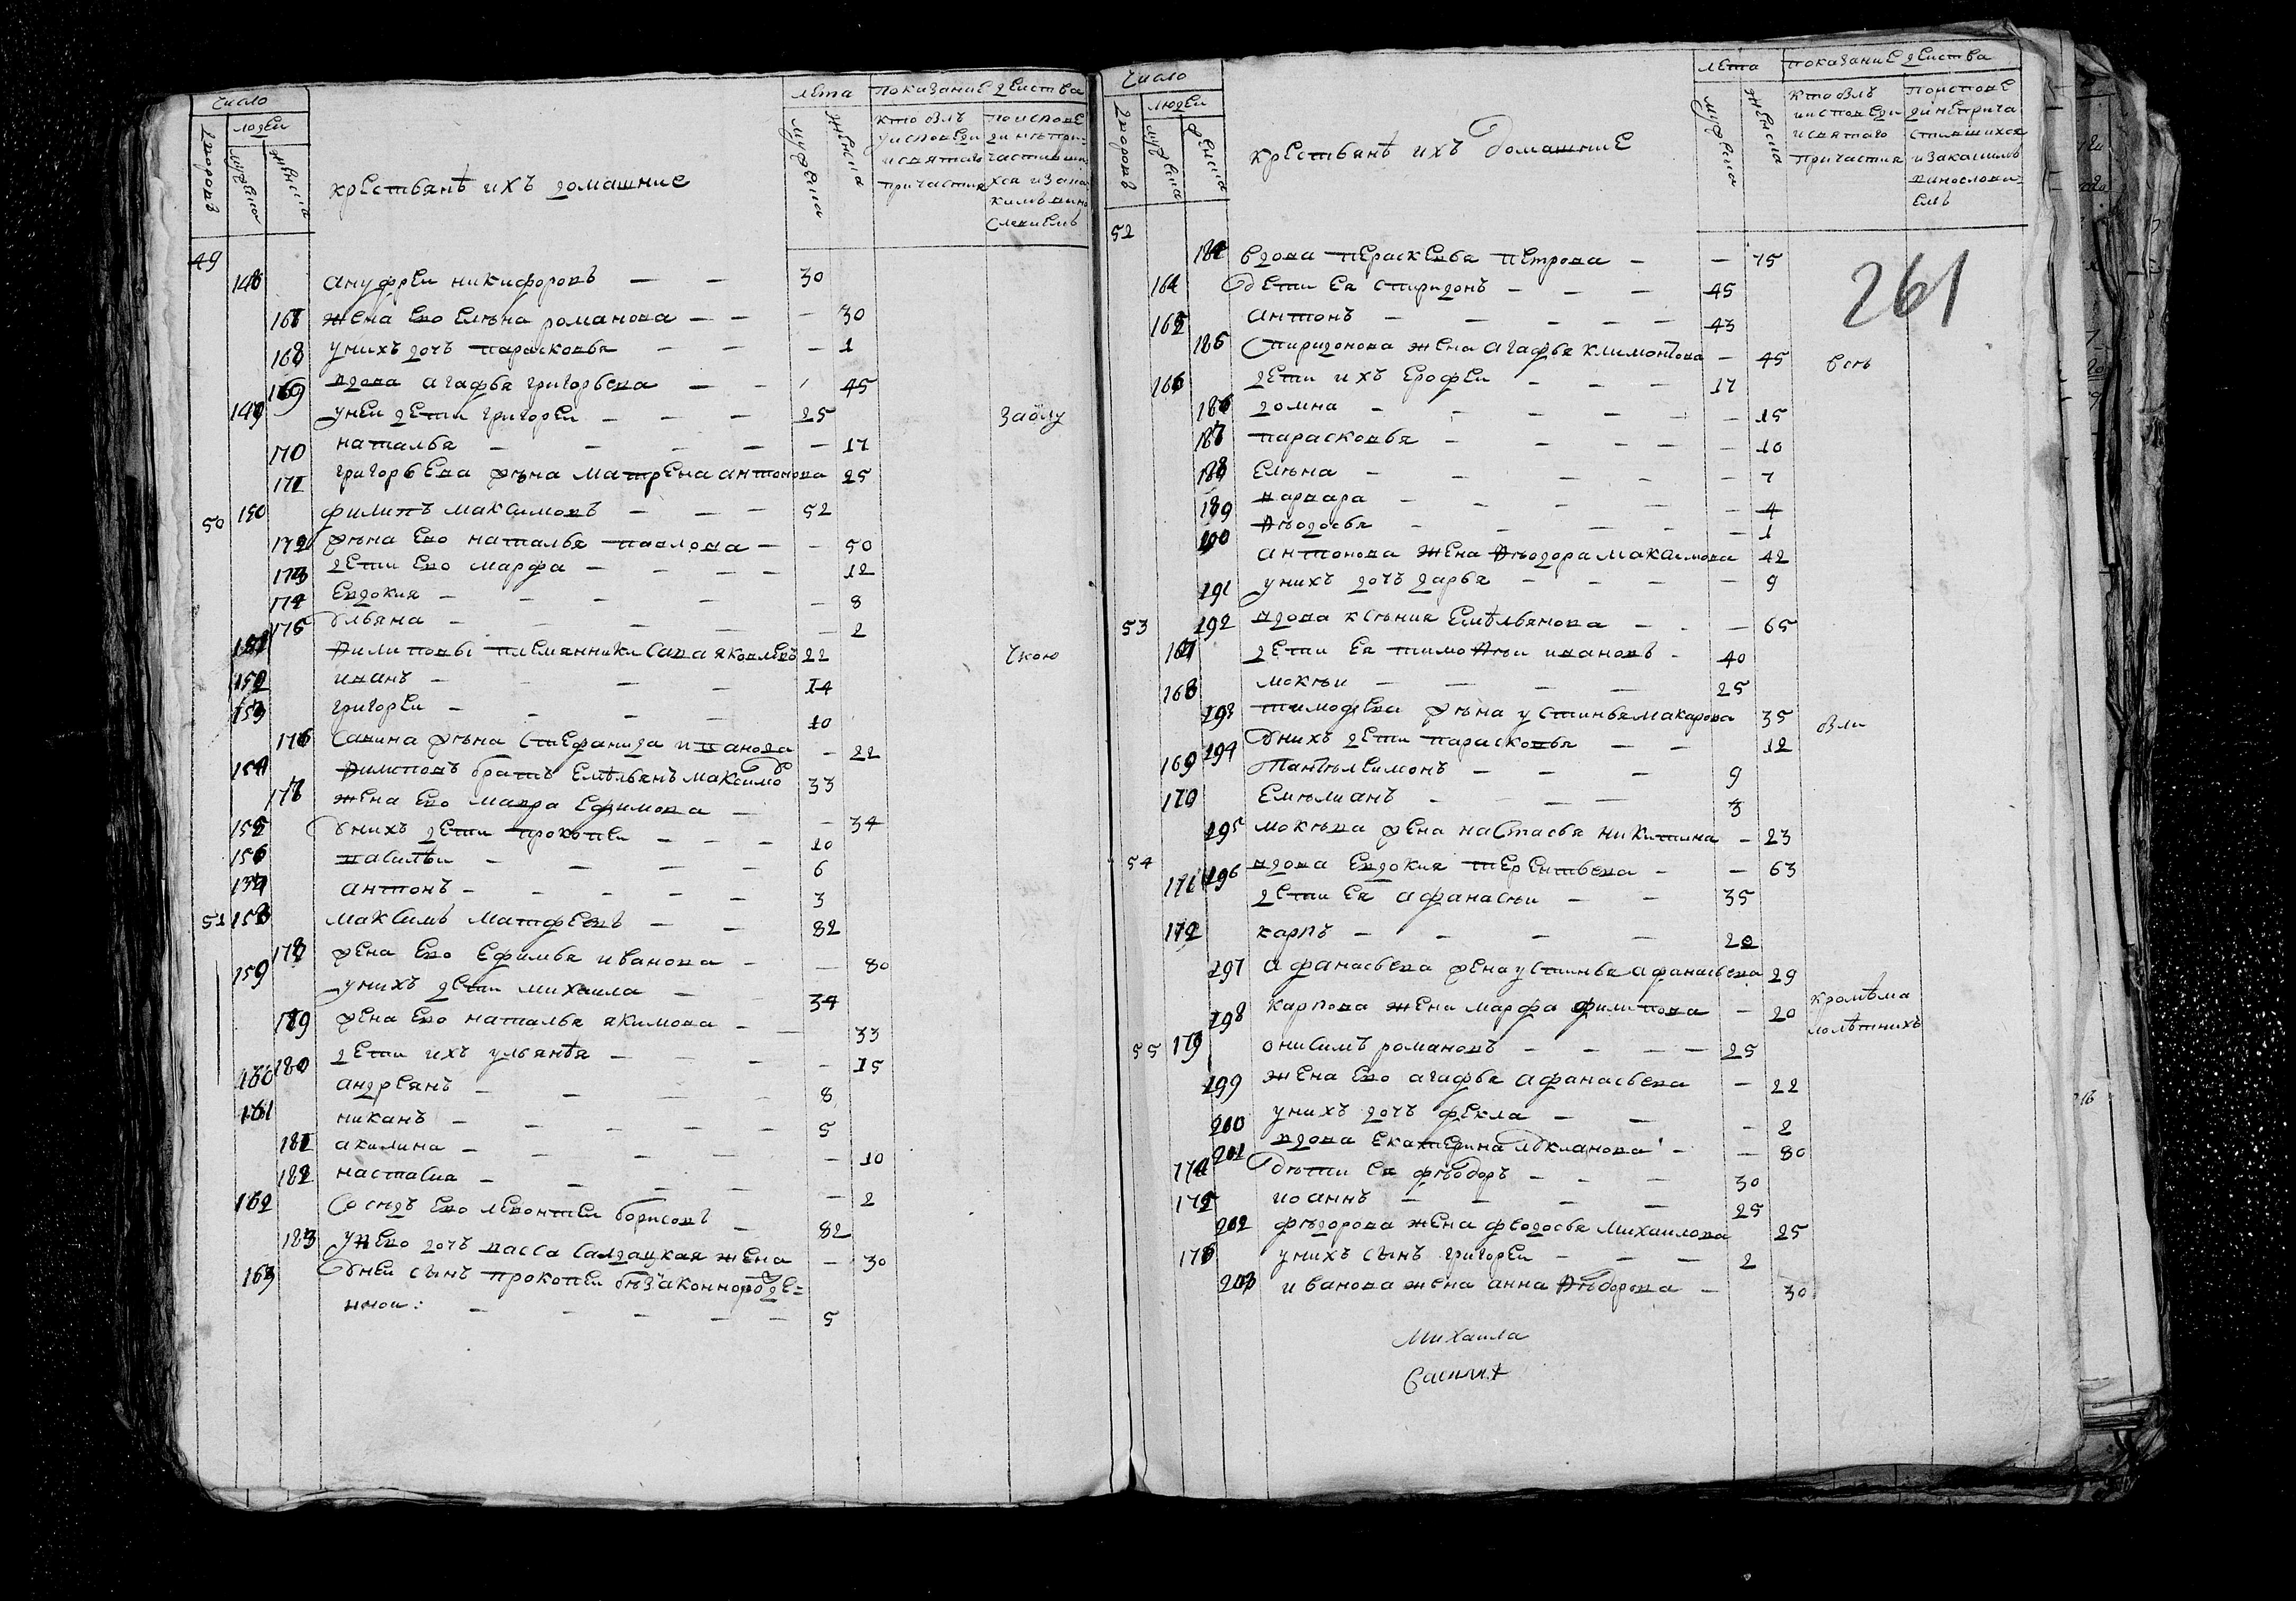 число
лета показание деиства
дворовъ людеи
мужеска женска
крестьянѣ ихъ домашние
мужеска женска
кто былъ уисповеди исвятаго причастия
поисповеди
49
148 ануфреи никифоровъ — — 30
167 жена ево елѣна романова — — — 30
168 унихъ дочъ парасковья — — — 1
169 вдова агафья григорьева — — 45
149 унеи дети григореи — — — 25
170 наталья — — — — — 17
171 григорьева жѣна матрена антонова 25
50 150 филипъ максимовъ — — — 52
172 жѣна ево наталья павлова — — 50
173 дети ево марфа — — — — 12
174 евдокия — — — — — 8
175 ульяна — — — — — 2
151 филиповы племянники сава яковлевъ 22
152 иванъ — — — 14
153 григореи — — — — 10
176 савина жѣна стефанида иванова — 22
154 филиповъ братъ емѣльянъ максимо 33
177 жена ево мавра ефимова — — 34
155 унихъ дети прокопеи — — — 10
156 василѣи — — — — 6
157 антонъ — — — — 3
51 158 максимъ матфеевъ — — 82
178 жена ево ефимья иванова — — 80
159 унихъ дети михаила — — 34
179 жена ево наталья якимова — — 33
180 дети ихъ ульянѣя — — — 15
160 андреянъ — — — — 8
161 никанъ — — — — — 5
181 акилина — — — — — 10
182 настасиа — — — — — 2
162 сосѣдъ ево левонтеи борисовъ — 82
183 унево дочъ васса салдацкая жена — 30
163 унеи сынъ прокопеи бѣзаконнорожде=
нои: — — — — — 5
число
лета показание деиства
дворовъ людеи
мужеска женска
крестьянѣ ихъ домашние
мужеска женска
кто былъ уисповеди исвятаго причастия
поисповеди непричастившихся изакакимъ винословиемъ
261
52
184 вдова пераскевья петрова — — 75
164 дети ея спиридонъ — — — 45
165 антонъ — — — — — 43
185 спиридонова жена агафья климонтова — 45
166 дети ихъ ерофеи — — — 17
186 домна — — — — — 15
187 парасковья — — — — 10
188 елѣна — — — — — 7
189 варвара — — — — — 4
190 фѣодосья — — — — — 1
антонова жена фѣодора максимова 42
191 унихъ дочъ дарья — — — — 9
53 192 вдова ксѣния емѣльянова — — — 65
167 дети ея тимофѣи ивановъ — 40
168 мокѣи — — — — 25
193 тимофева жѣна устинья макарова 35
194 унихъ дети парасковья — — 12
169 пантѣлеимонъ — — — 9
170 емѣлианъ — — — 3
195 мокѣва жена настасья никитина — 23
54 196 вдова евдокия терентьева — — 63
171 дети ея афанасѣи — — 35
172 карпъ — — — — 20
197 афанасьева жена устинья афанасьева 29
198 карпова жена марфа филипова — 20
55 173 онисимъ романовъ — — — — 25
199 жена ево агафья афанасьева — 22
200 унихъ дочъ фекла — — — 2
201 вдова екатерина — — 80
174 дѣти ея фѣодоръ — — — 30
175 иоаннъ — — — — 25
202 фѣдорова жена феодосья михаилова 25
176 унихъ сынъ григореи — — — 2
203 иванова жена анна фѣдорова — 30
всѣ
были
кромѣ ма
лолѣтнихъ
михаила